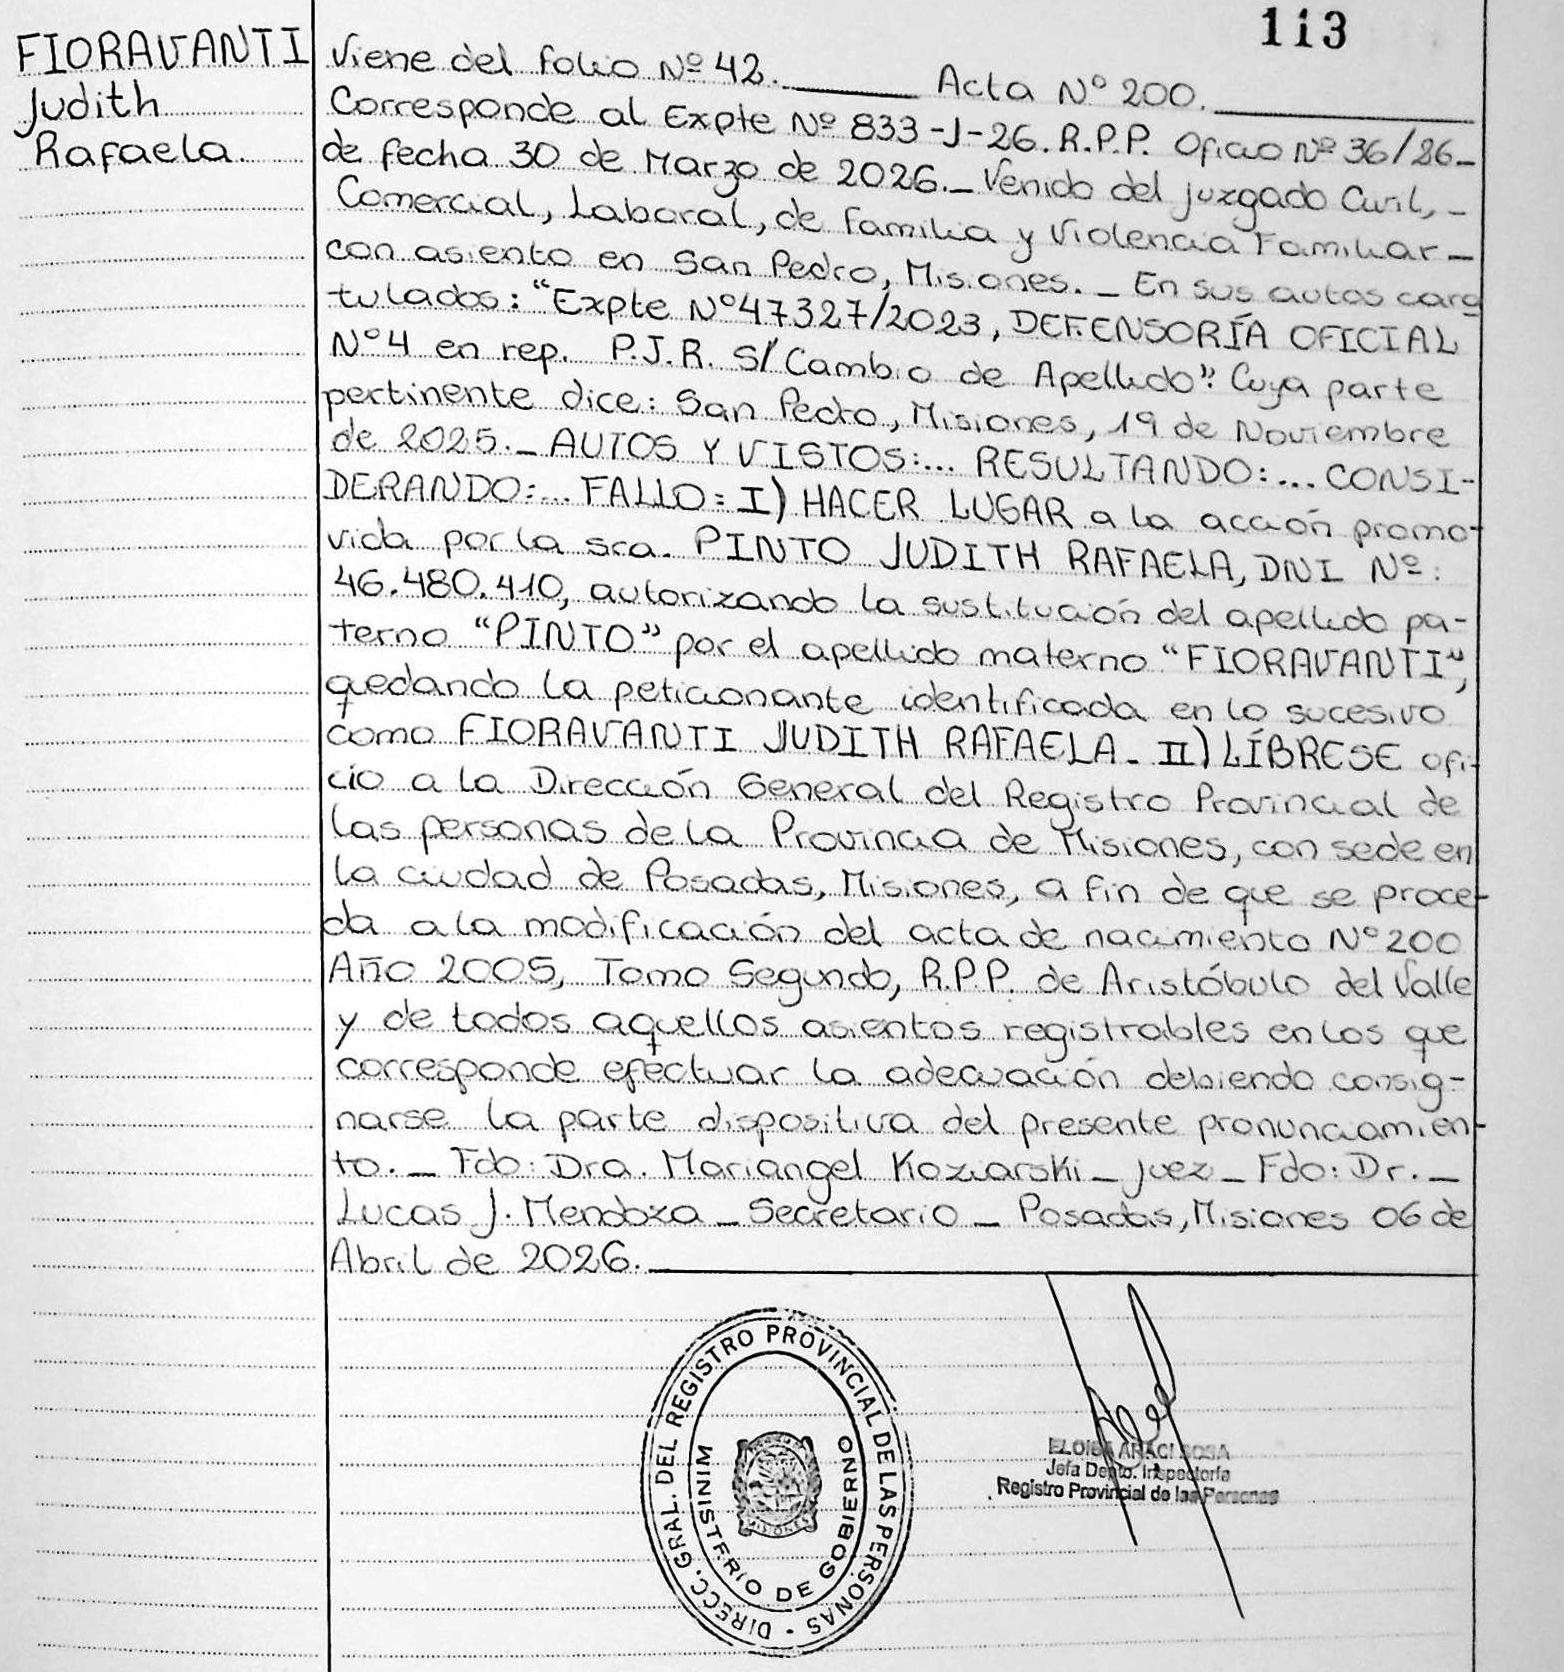 113
FIORAVANTI
Judith
Rafaela.
Viene del folio Nº 42. Acta Nº 200.
Corresponde al Expte Nº 833-J-26. R.P.P. Oficio Nº 36/26_
de fecha 30 de Marzo de 2026._ Venido del juzgado Civil, _
Comercial, Laboral, de familia y Violencia Familiar _
con asiento en San Pedro, Misiones. _ En sus autos cara
tulados: "Expte Nº 47327/2023, DEFENSORÍA OFICIAL
Nº 4 en rep. P.J.R. S/ Cambio de Apellido". Cuya parte
pertinente dice: San Pedro, Misiones, 19 de Noviembre
de 2025._ AUTOS Y VISTOS:... RESULTANDO:... CONSI-
DERANDO:... FALLO: I) HACER LUGAR a la acción promo-
vida por la sra. PINTO JUDITH RAFAELA, DNI Nº:
46.480.410, autorizando la sustitución del apellido pa-
terno "PINTO" por el apellido materno "FIORAVANTI",
quedando la peticionante identificada en lo sucesivo
como FIORAVANTI JUDITH RAFAELA_ II) LÍBRESE ofi-
cio a la Dirección General del Registro Provincial de
las personas de la Provincia de Misiones, con sede en
la ciudad de Posadas, Misiones, a fin de que se proce-
da a la modificación del acta de nacimiento Nº 200
Año 2005, Tomo Segundo, R.P.P. de Aristóbulo del Valle
y de todos aquellos asientos registrables en los que
corresponde efectuar la adecuación debiendo consig-
narse la parte dispositiva del presente pronunciamien-
to. _ Fdo: Dra. Mariangel Koziarski _ Juez _ Fdo: Dr. _
Lucas J. Mendoza _ Secretario _ Posadas, Misiones 06 de
Abril de 2026.
DIRECC. GRAL. DEL REGISTRO PROVINCIAL DE LAS PERSONAS -
MINISTERIO DE GOBIERNO
MISIONES
ELOISA ARACI SOSA
Jefa Depto. Inspectoría
Registro Provincial de las Personas